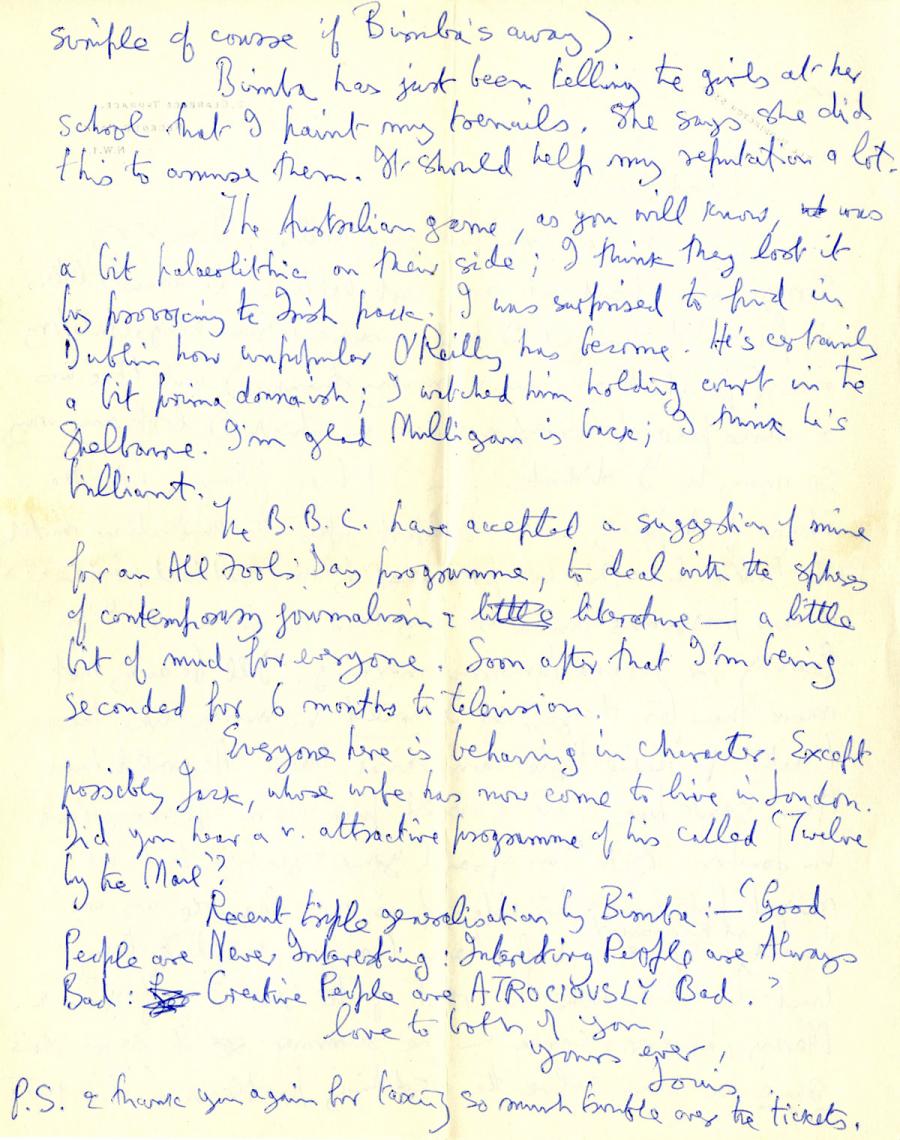 simple of course if Bimba's away).
Bimba has just been telling the girls at her
school that I paint my toenails. She says she did
this to amuse them. It should help my reputation a lot.
The Australian game, as you will know, was
a bit palaeolithic on their side; I think they lost it
by provoking the Irish pack. I was surprised to find in
Dublin how unpopular O'Reilly has become. He's certainly
a bit prima donnaish; I watched him holding court in the
Shelbourne. I'm glad Mulligan is back; I think he's
brilliant.
The B.B.C. have accepted a suggestion of mine
for an All Fools' Day programme, to deal with the spheres
of contemporary journalism & little literature — a little
bit of mud for everyone. Soon after that I'm being
seconded for 6 months to television.
Everyone here is behaving in character. Except
possibly Jack, whose wife has now come to live in London.
Did you hear a v. attractive programme of his called 'Twelve
by the Mail'?
Recent triple generalisation by Bimba:— 'Good
People are Never Interesting: Interesting People are Always
Bad: Creative People are ATROCIOUSLY Bad.'
love to both of you,
yours ever,
Louis
P.S. & thank you again for taking so much trouble over the tickets.